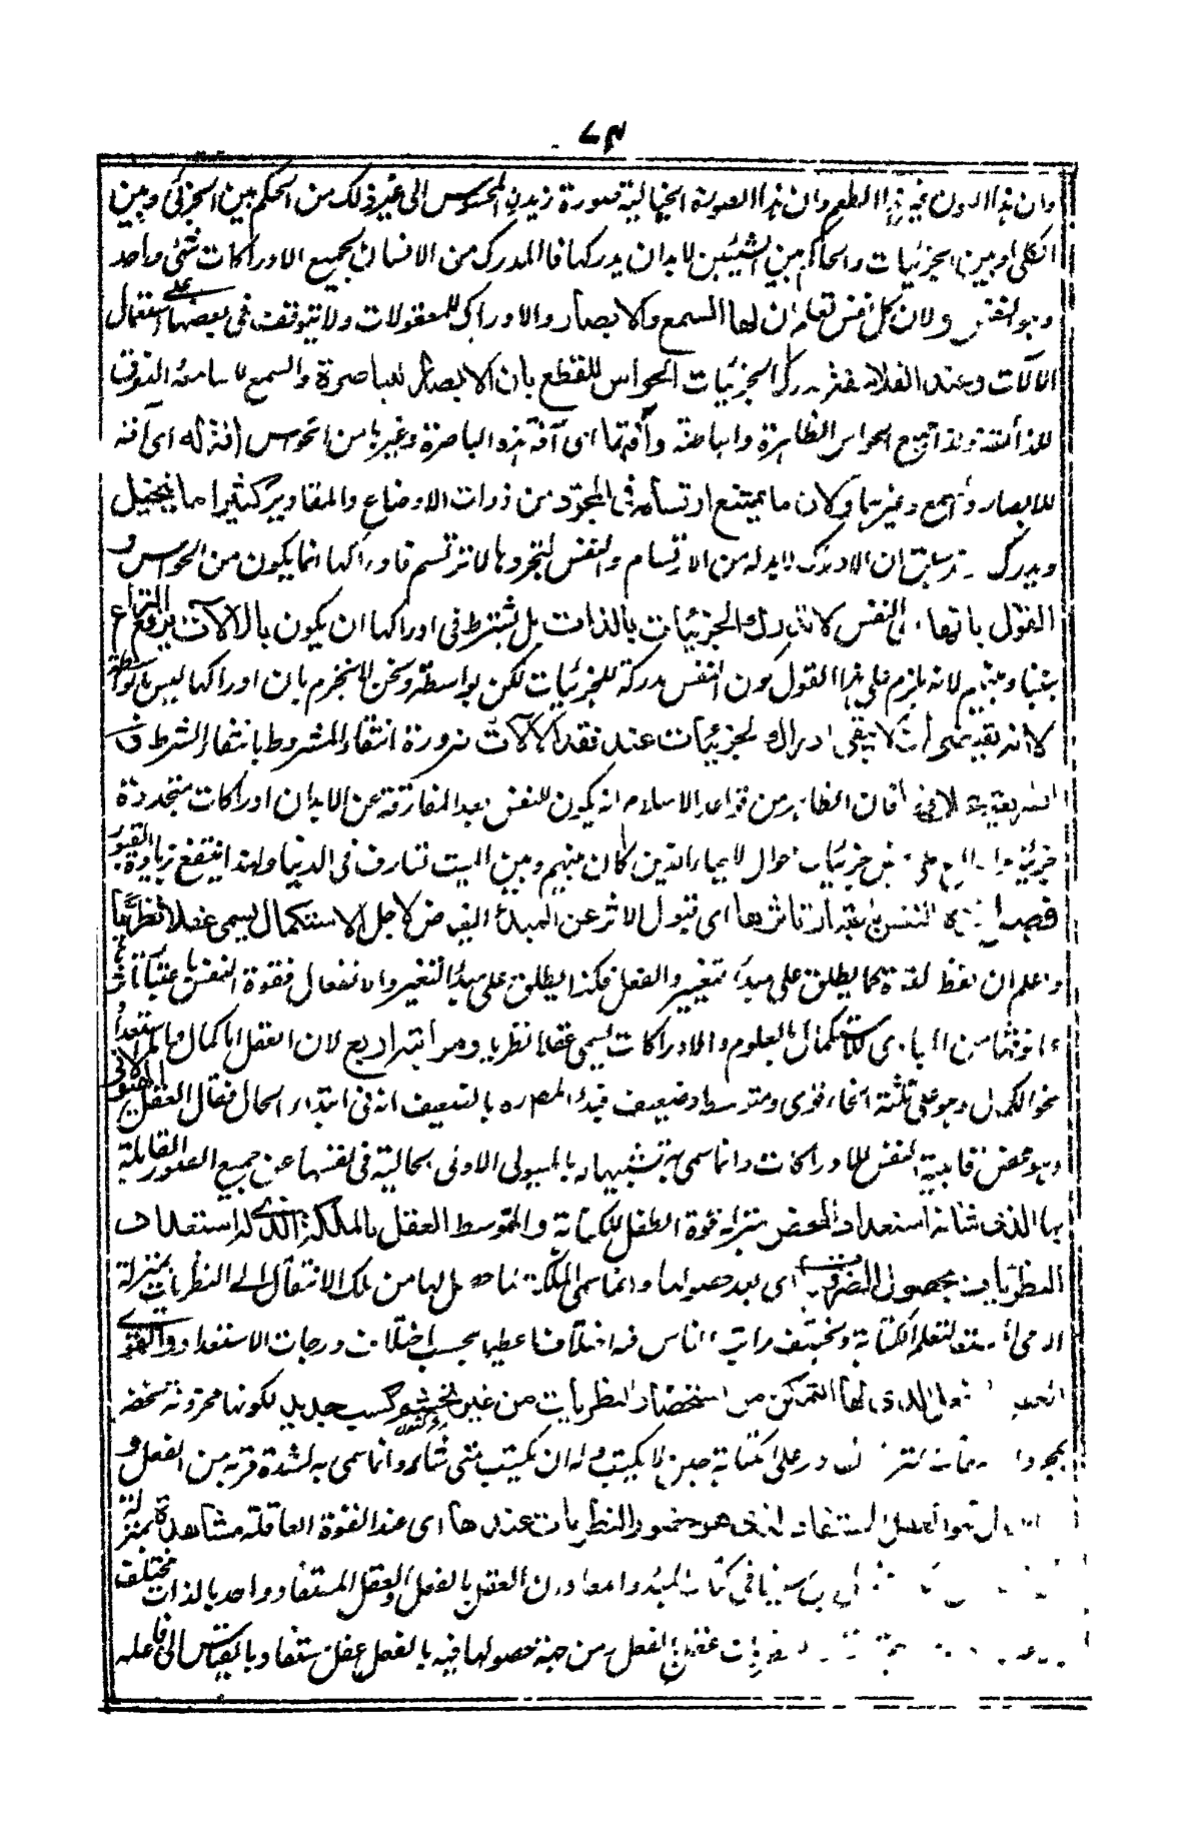 ٧٣
وان هذا اللون غير هذا الطعم وان هذا الصورة الخيالية صورة زيد المحسوس الى غير ذلك من الحكم بين الجزئى وبين
الكلى او بين الجزئيات والحاكم بين الشيئين لا بد ان يدركهما فالمدرك من الانسان لجميع الادراكات شئ واحد
وهو النفس ولان كل نفس تعلم ان لها السمع والابصار والادراك للمعقولات ولا تتوقف فى بعضها على استعمال
الآلات وعند الفلاسفة مدرك الجزئيات الحواس للقطع بان الابصار للباصرة والسمع للسامعة والذوق
للذائقة وكذا جميع الحواس الظاهرة والباطنة وآفتها اى آفة هذه الباصرة وغيرها من الحواس آفة له اى آفة
للابصار والسمع وغيرها ولان ما يمتنع ارتسامه فى المجرد من ذوات الاوضاع والمقادير كثيرا ما يتخيل
ويدرك وقد سبق ان الادراك لا بد له من الارتسام والنفس لتجردها لا ترتسم فادراكها انما يكون من الحواس و
القول بانها اى النفس لا تدرك الجزئيات بالذات بل يشترط فى ادراكها ان يكون بالآلات يرفع النزاع
بيننا وبينهم لانه يلزم على هذا القول كون النفس مدركة للجزئيات لكن بواسطة ونحن لا نجزم بان ادراكها ليس بالواسطة
لانه يقتضى ان لا يبقى ادراك الجزئيات عند فقد الآلات ضرورة انتفاء المشروط بانتفاء الشرط ف
الشريعة فان الظاهر من قواعد الاسلام انه يكون للنفس بعد المفارقة عن الابدان ادراكات متجددة
جزئية واطلاع على بعض جزئيات احوال الاحياء الذين كان بينهم وبين الميت تعارف فى الدنيا ولهذا ينتفع بزيارة القبور
فصل قوة النفس باعتبار تاثرها اى قبول الاثر عن المبدأ الفياض لاجل الاستكمال يسمى عقلا نظريا
واعلم ان لفظ القوة كما يطلق على مبدأ التغيير والفعل فكذا يطلق على مبدأ التغير والانفعال فقوة النفس باعتبار تاثرها
عما فوقها من المبادى للاستكمال بالعلوم والادراكات يسمى عقلا نظريا ومراتبه اربع لان العقل اما كمال واما استعداد
نحو الكمال وهو على ثلثة انحاء قوى ومتوسط وضعيف فبدأ المصنف بالضعيف انه فى ابتداء الحال فقال العقل الهيولانى
وهو محض قابلية النفس للادراكات وانما سمى به تشبيها له بالهيولى الاولى الخالية فى نفسها عن جميع الصور القابلة
بها الذى شانه استعداد المحض بمنزلة قوة الطفل للكتابة والمتوسط العقل بالملكة الذى له استعداد
النظريات بحصول الضروريات اى بعد حصولها وانما سمى الملكة لما حصل لها من ملك الانتقال الى النظريات بمنزلة
الامى المستعد لتعلم الكتابة ويختلف مراتب الناس فيه اختلافا عظيما بحسب اختلاف درجات الاستعداد والقوى
العقل بالفعل الذى لها التمكن من استحضار النظريات من غير تجشم كسب جديد لكونها مخزونة محضة
بمجرد بمنزلة القادر على الكتابة حين لا يكتب وله ان يكتب متى شاء وانما سمى به لشدة قربه من الفعل و
الكمال هو العقل المستفاد الذى هو حضور النظريات عندها اى عند القوة العاقلة مشاهدة بمنزلة
ابن سينا فى كتاب المبدأ والمعاد ان العقل بالفعل والعقل المستفاد واحد بالذات مختلف
عقل بالفعل ومن جهة حصولها فيه بالفعل عقل مستفاد وبالقياس الى فاعله